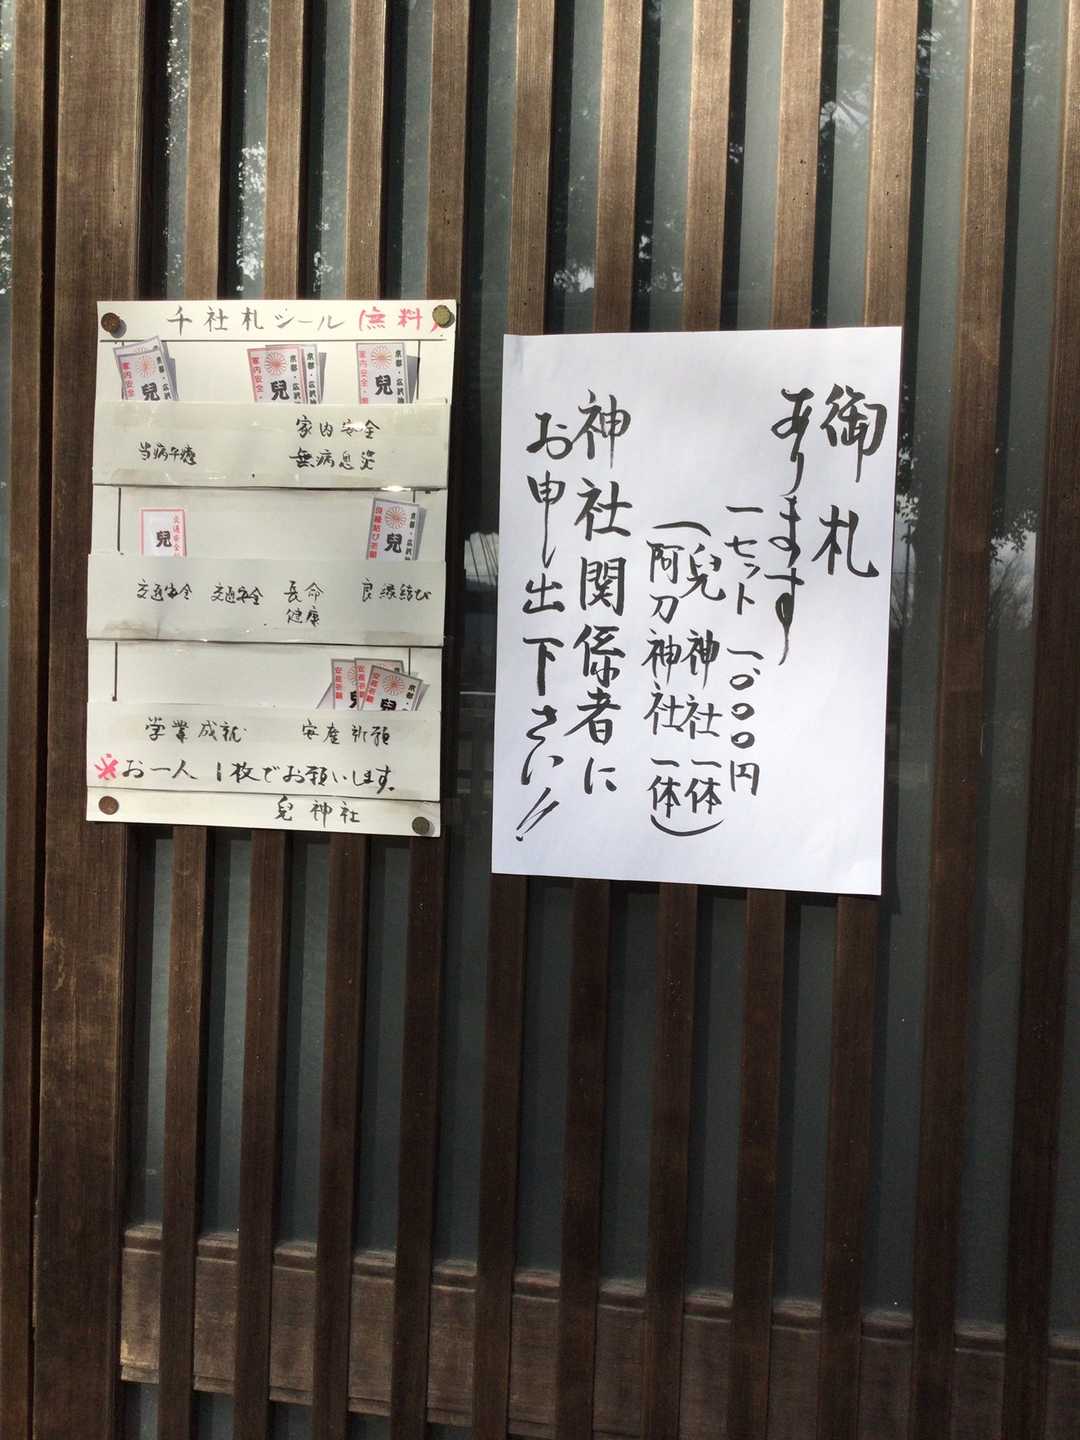 千社札シール(無料)
当病平癒
家内安全
無病息災
交通安全
交通安全
長命
健康
良縁結び
学業成就
安産祈願
※お一人1枚でお願いします。
兒神社
家内安全
兒
京都・広沢
家内安全
兒
交通安全
兒
良縁結び祈願
兒
京都・広沢
安産祈願
安産祈願
安産祈願
京都・
御札
あります
一セット 一、〇〇〇円
(兒神社一体
阿刀神社一体)
神社関係者に
お申し出下さい!!